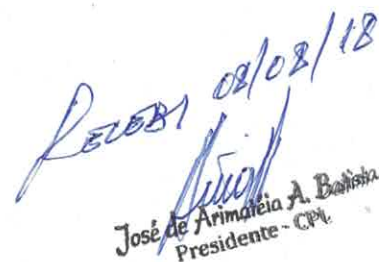 RECEBI 08/08/18
José de Arimatéia A. Batista
Presidente - CPL